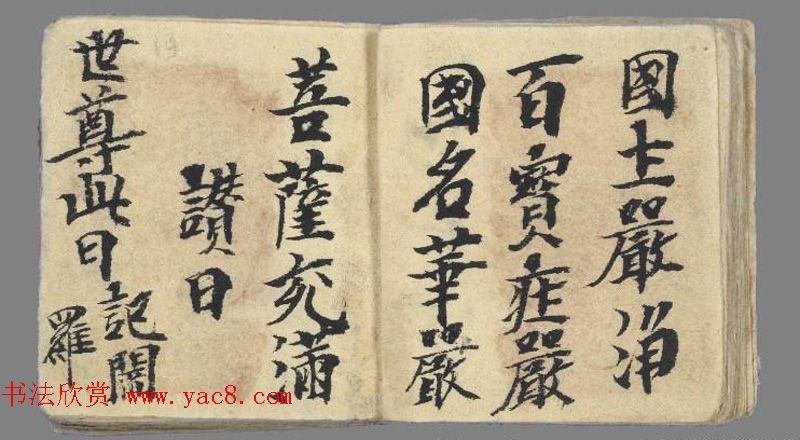 國土嚴净
百寶症嚴
國名華嚴
菩薩充滿
讃曰
世尊此日記閻
羅
书法欣赏 www.yac8.com